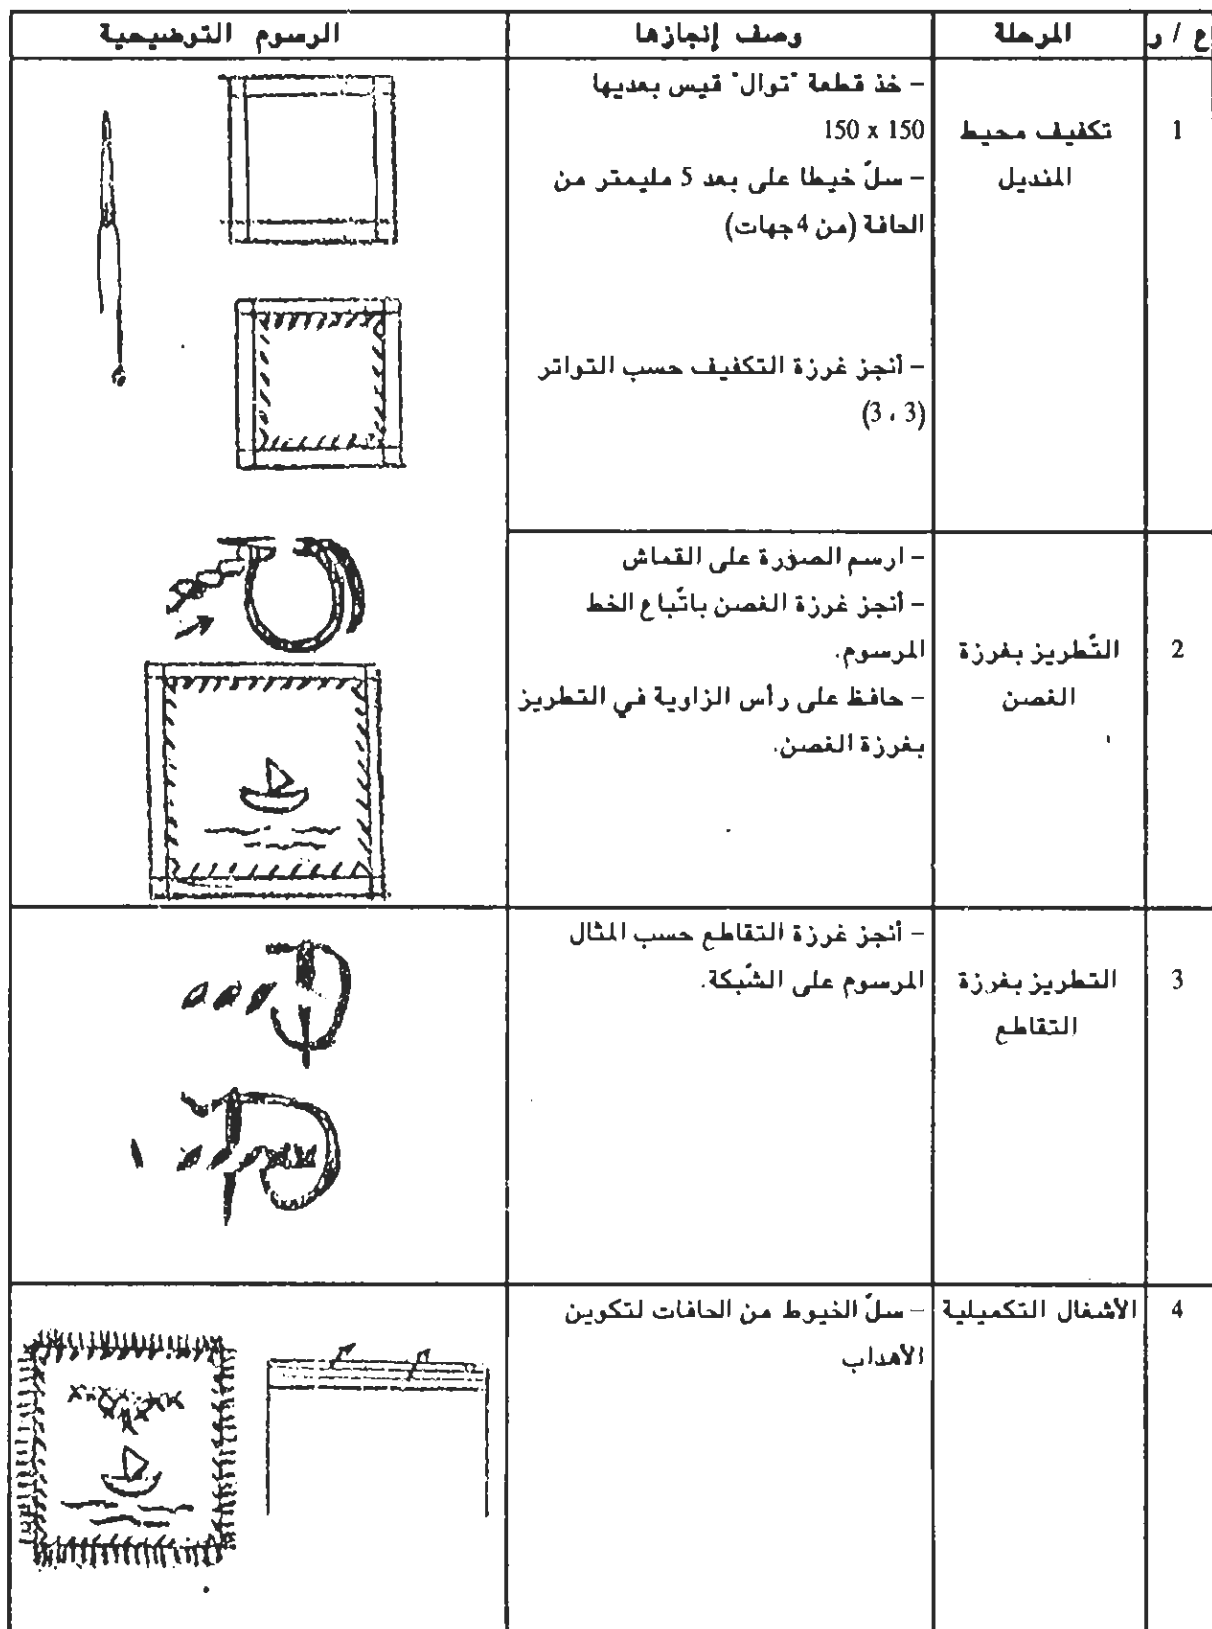 ع / ر المرحلة وصف إنجازها الرسوم التوضيحية
1
تكفيف محيط
المنديل
– خذ قطعة "توال" قيس بعديها
150 x 150
– سلّ خيطا على بعد 5 مليمتر من
الحافة (من 4 جهات)
– أنجز غرزة التكفيف حسب التواتر
(3 ، 3)
2
التّطريز بغرزة
الغصن
– ارسم الصورة على القماش
– أنجز غرزة الغصن باتّباع الخط
المرسوم.
– حافظ على رأس الزاوية في التطريز
بغرزة الغصن.
3
التطريز بغرزة
التقاطع
– أنجز غرزة التقاطع حسب المثال
المرسوم على الشّبكة.
4
الأشغال التكميلية
– سلّ الخيوط من الحافات لتكوين
الأهداب